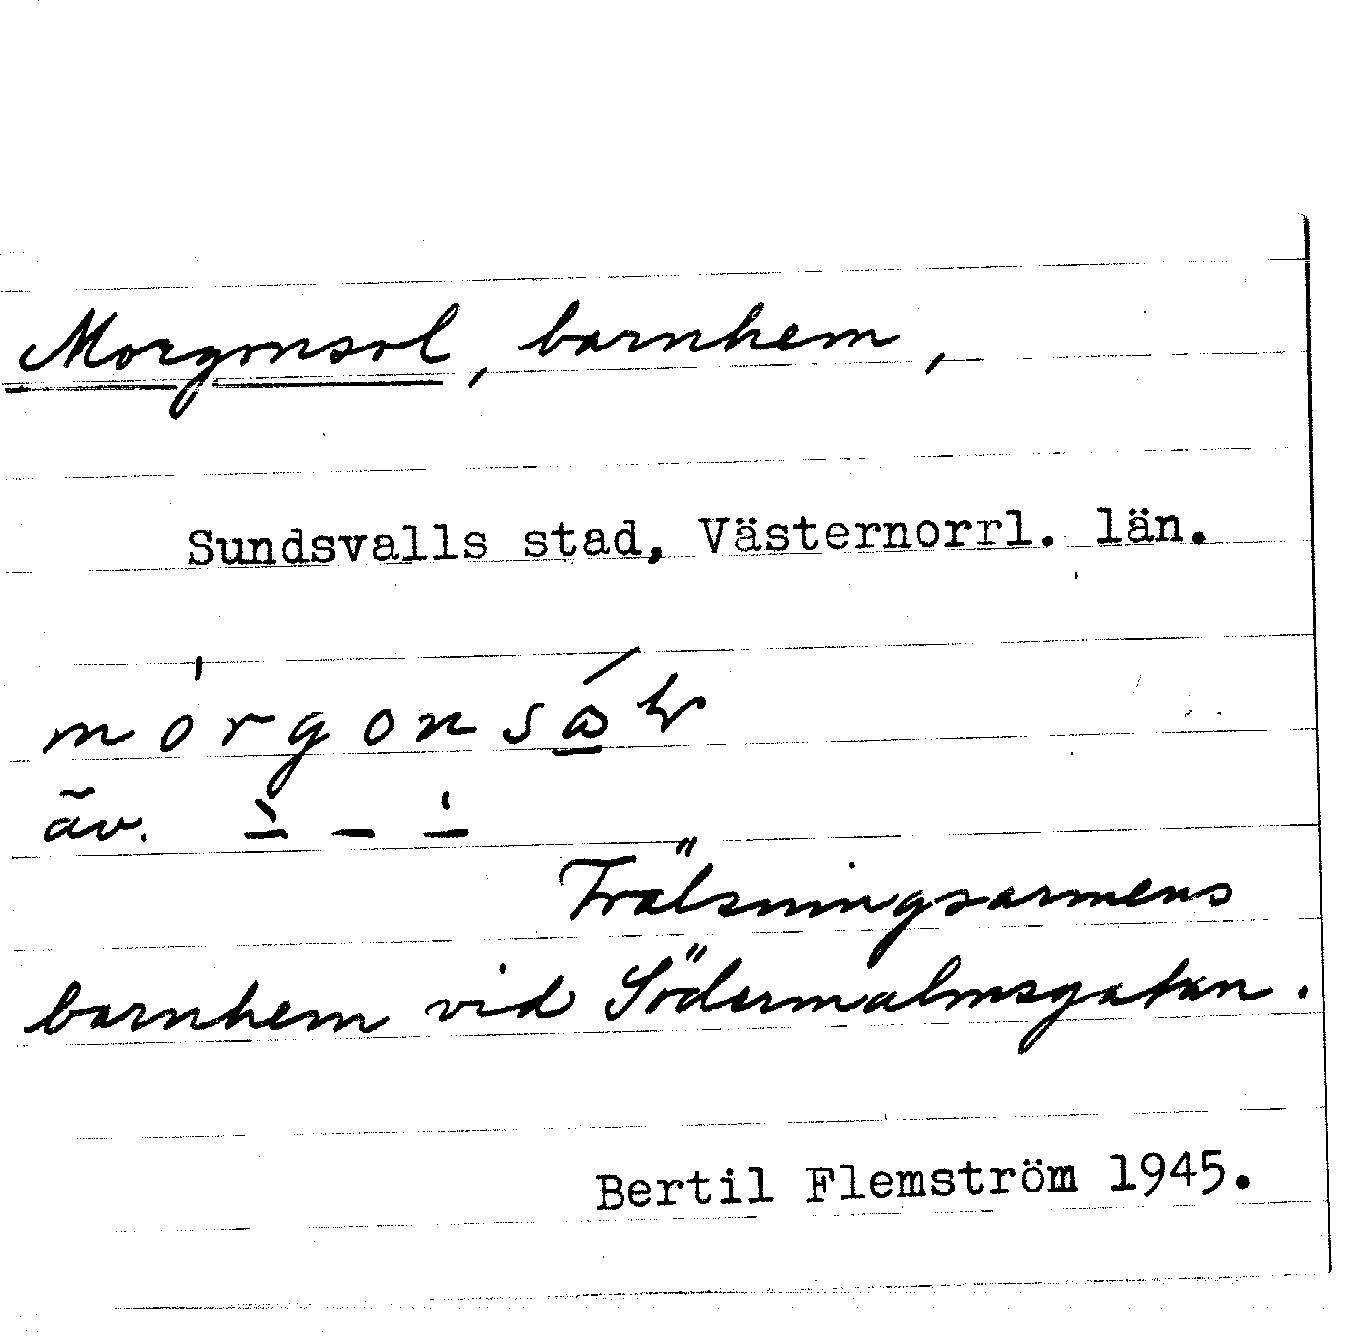 Morgonsol, barnhem,
Sundsvalls stad, Västernorrl. län.
äv.
Frälsningsarmens
barnhem vid Södermalmsgatan.
Bertil Flemström 1945.